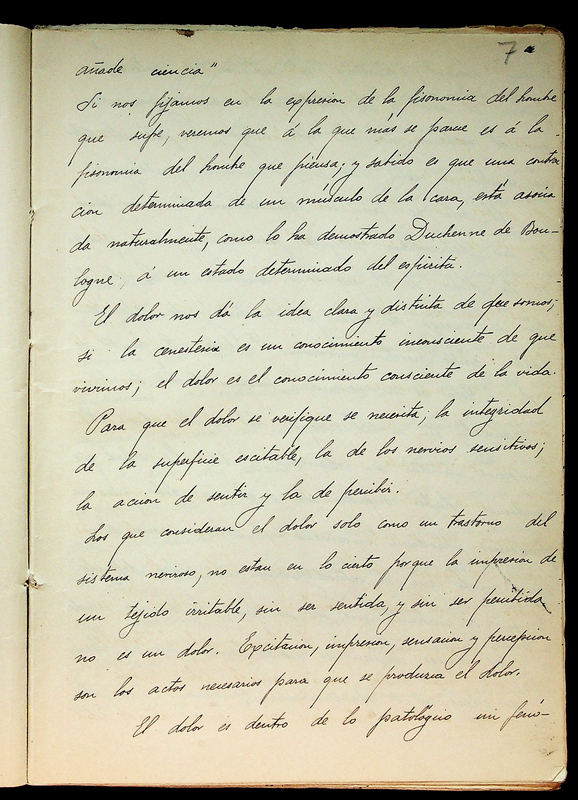 7
añade ciencia"
Si nos fijamos en la expresion de la fisonomia del hombre
que sufre, veremos que á la que más se parece es á la
fisonomia del hombre que piensa; y sabido es que una contra
cion determinada de un músculo de la cara, está asocia
da naturalmente, como lo ha demostrado Duchenne de Bou-
logne, á un estado determinado del espiritu.
El dolor nos dá la idea clara y distinta de que somos;
si la cenestesia es un conocimiento inconsciente de que
vivimos; el dolor es el conocimiento consciente de la vida.
Para que el dolor se verifique se necesita; la integridad
de la superficie escitable, la de los nervios sensitivos;
la accion de sentir y la de percibir.
Los que consideran el dolor solo como un trastorno del
sistema nervioso, no estan en lo cierto porque la impresion de
un tejido irritable, sin ser sentida y sin ser percibida
no es un dolor. Excitacion, impresion, sensacion y percepcion
son los actos necesarios para que se produzca el dolor.
El dolor es dentro de lo patologico un fenó-